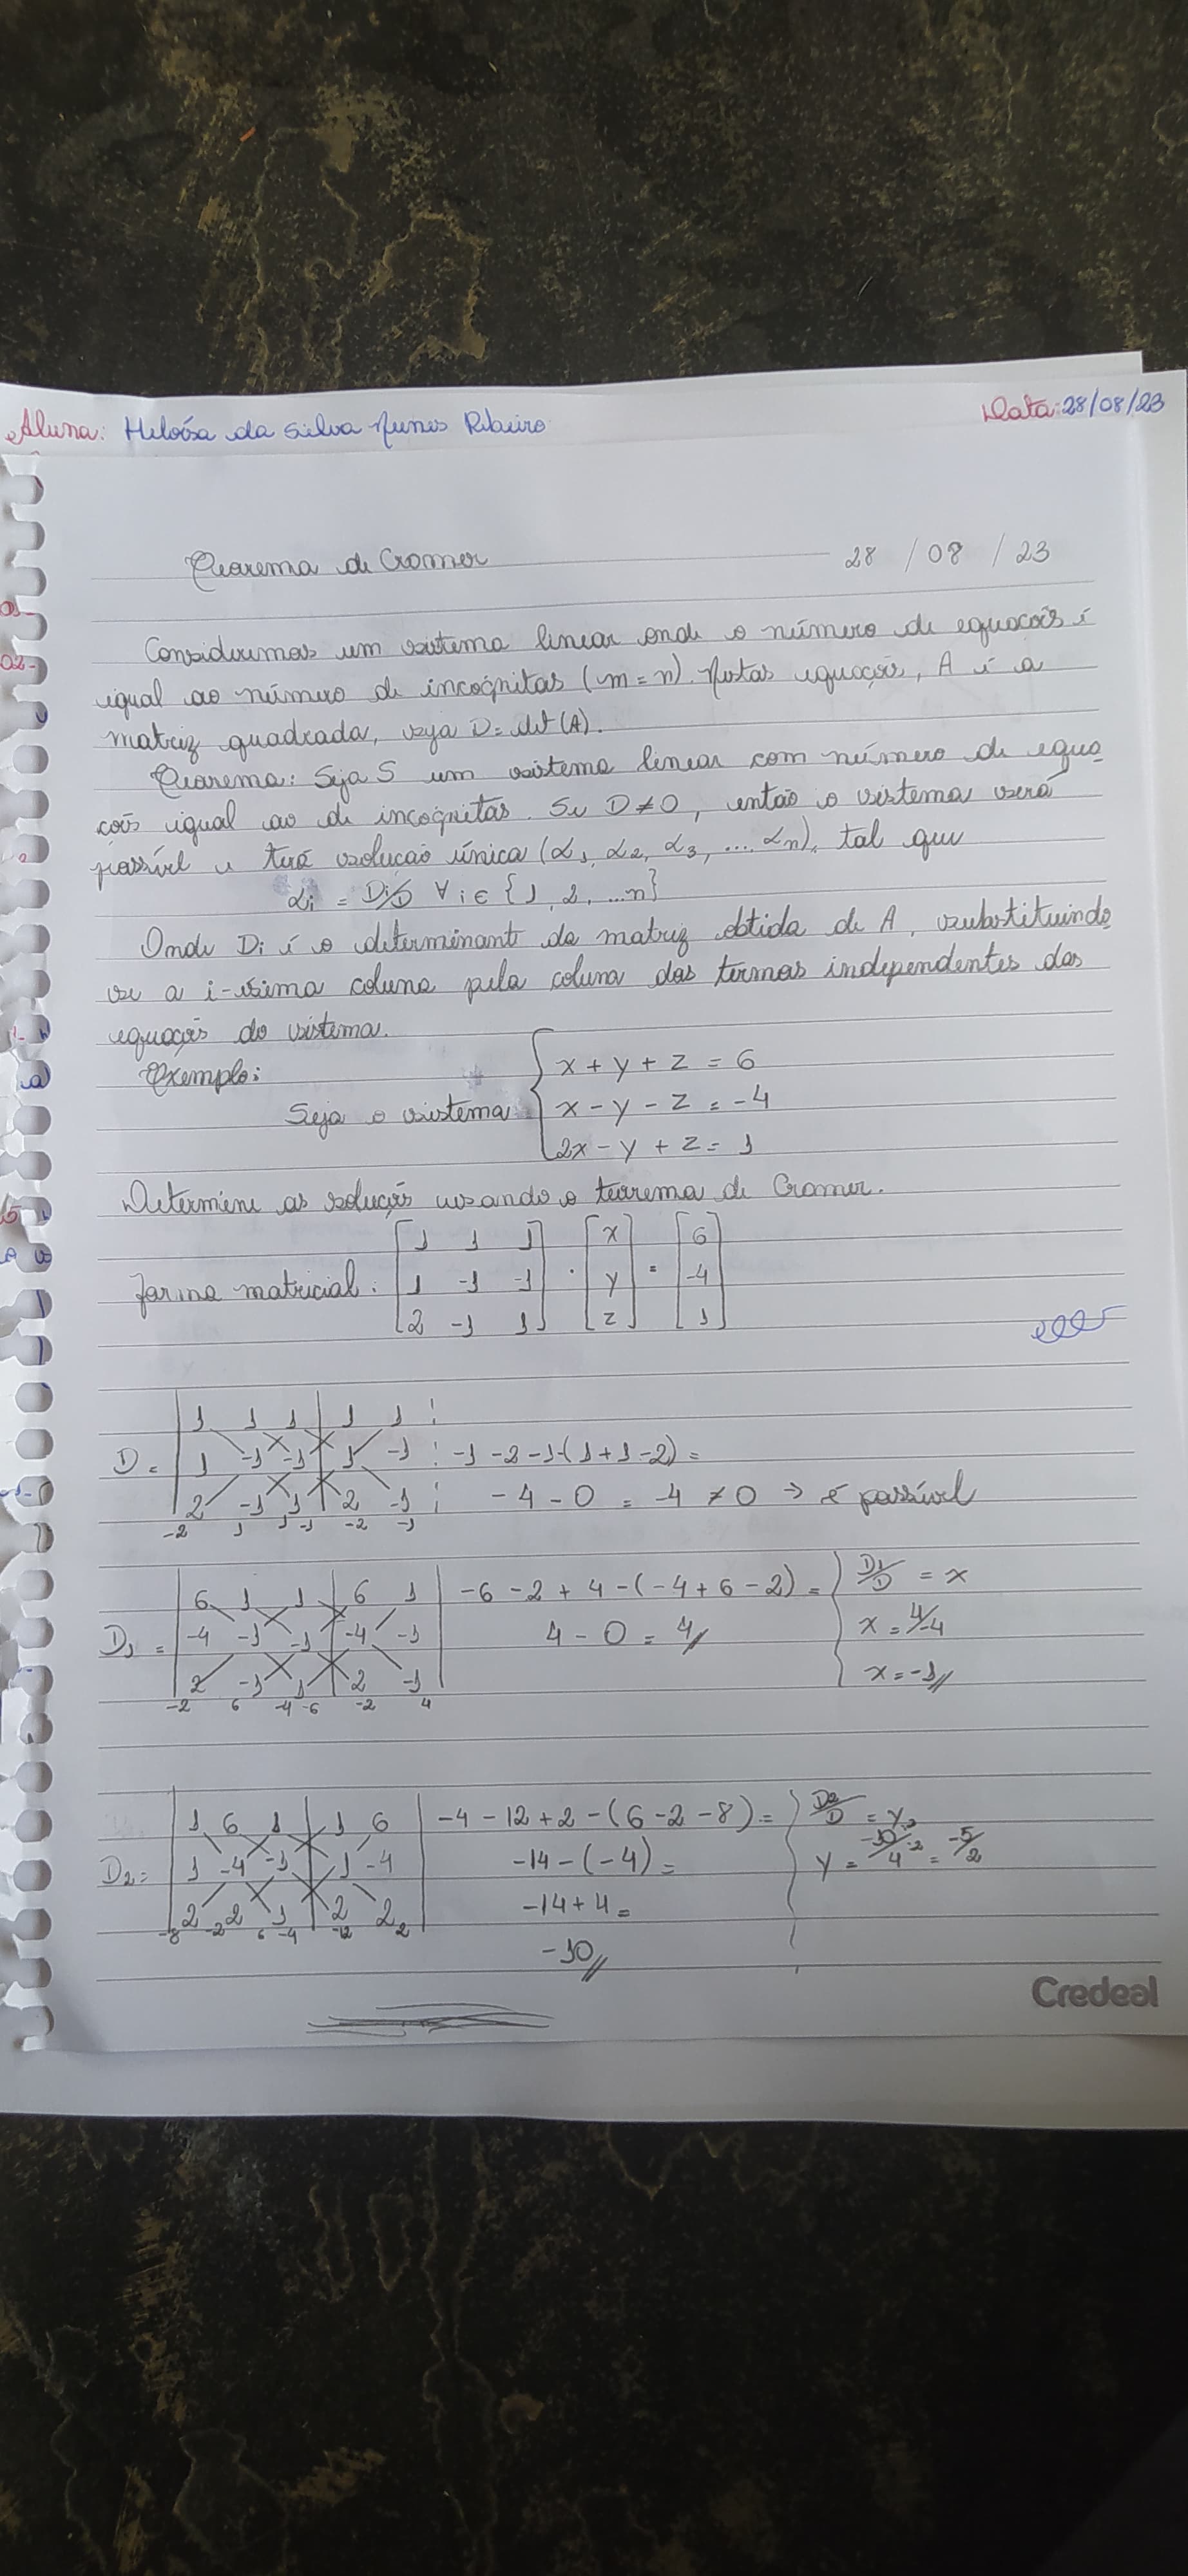 Aluna: Heloísa da Silva Nunes Ribeiro Data: 28/08/23
Teorema de Cramer 28 / 08 / 23
Consideremos um sistema linear onde o número de equações é
igual ao número de incógnitas (m = n). Nestas equações, A é a
matriz quadrada, seja D = det (A).
Teorema: Seja S um sistema linear com número de equa-
ções igual ao de incógnitas. Se D ≠ 0, então o sistema será
possível e terá solução única (α1, α2, α3, ... αn), tal que
αi = Di/D ∀ i ∈ {1, 2, ...n}
Onde Di é o determinante da matriz obtida de A, substituindo
se a i-ésima coluna pela coluna dos termos independentes das
equações do sistema.
Exemplo:
Seja o sistema
x + y + z = 6
x - y - z = -4
2x - y + z = 1
Determine as soluções usando o teorema de Cramer.
forma matricial:
1 1 1 x 6
1 -1 -1 . y = -4
2 -1 1 z 1
1 1 1 1 1
D = 1 -1 -1 1 -1 -1 -2 -1-(1+1-2) =
2 -1 1 2 -1 -4 - 0 = -4 ≠ 0 → é possível
-2 1 1 -1 -2 -1
6 1 1 6 1 -6 -2 + 4 -(-4 + 6 - 2) = D1/D = x
D1 = -4 -1 -1 -4 -1 4 - 0 = 4 x = 4/-4
2 -1 1 2 -1 x = -1
-2 6 -4 -6 -2 4
1 6 1 1 6 -4 - 12 + 2 -(6 - 2 - 8) = D2/D = y
D2 = 1 -4 -1 1 -4 -14 - (-4) = y = -10/4 :2 :2 = -5/2
2 2 1 2 2 -14 + 4 =
-8 -2 6 -4 -12 2
-10
Credeal